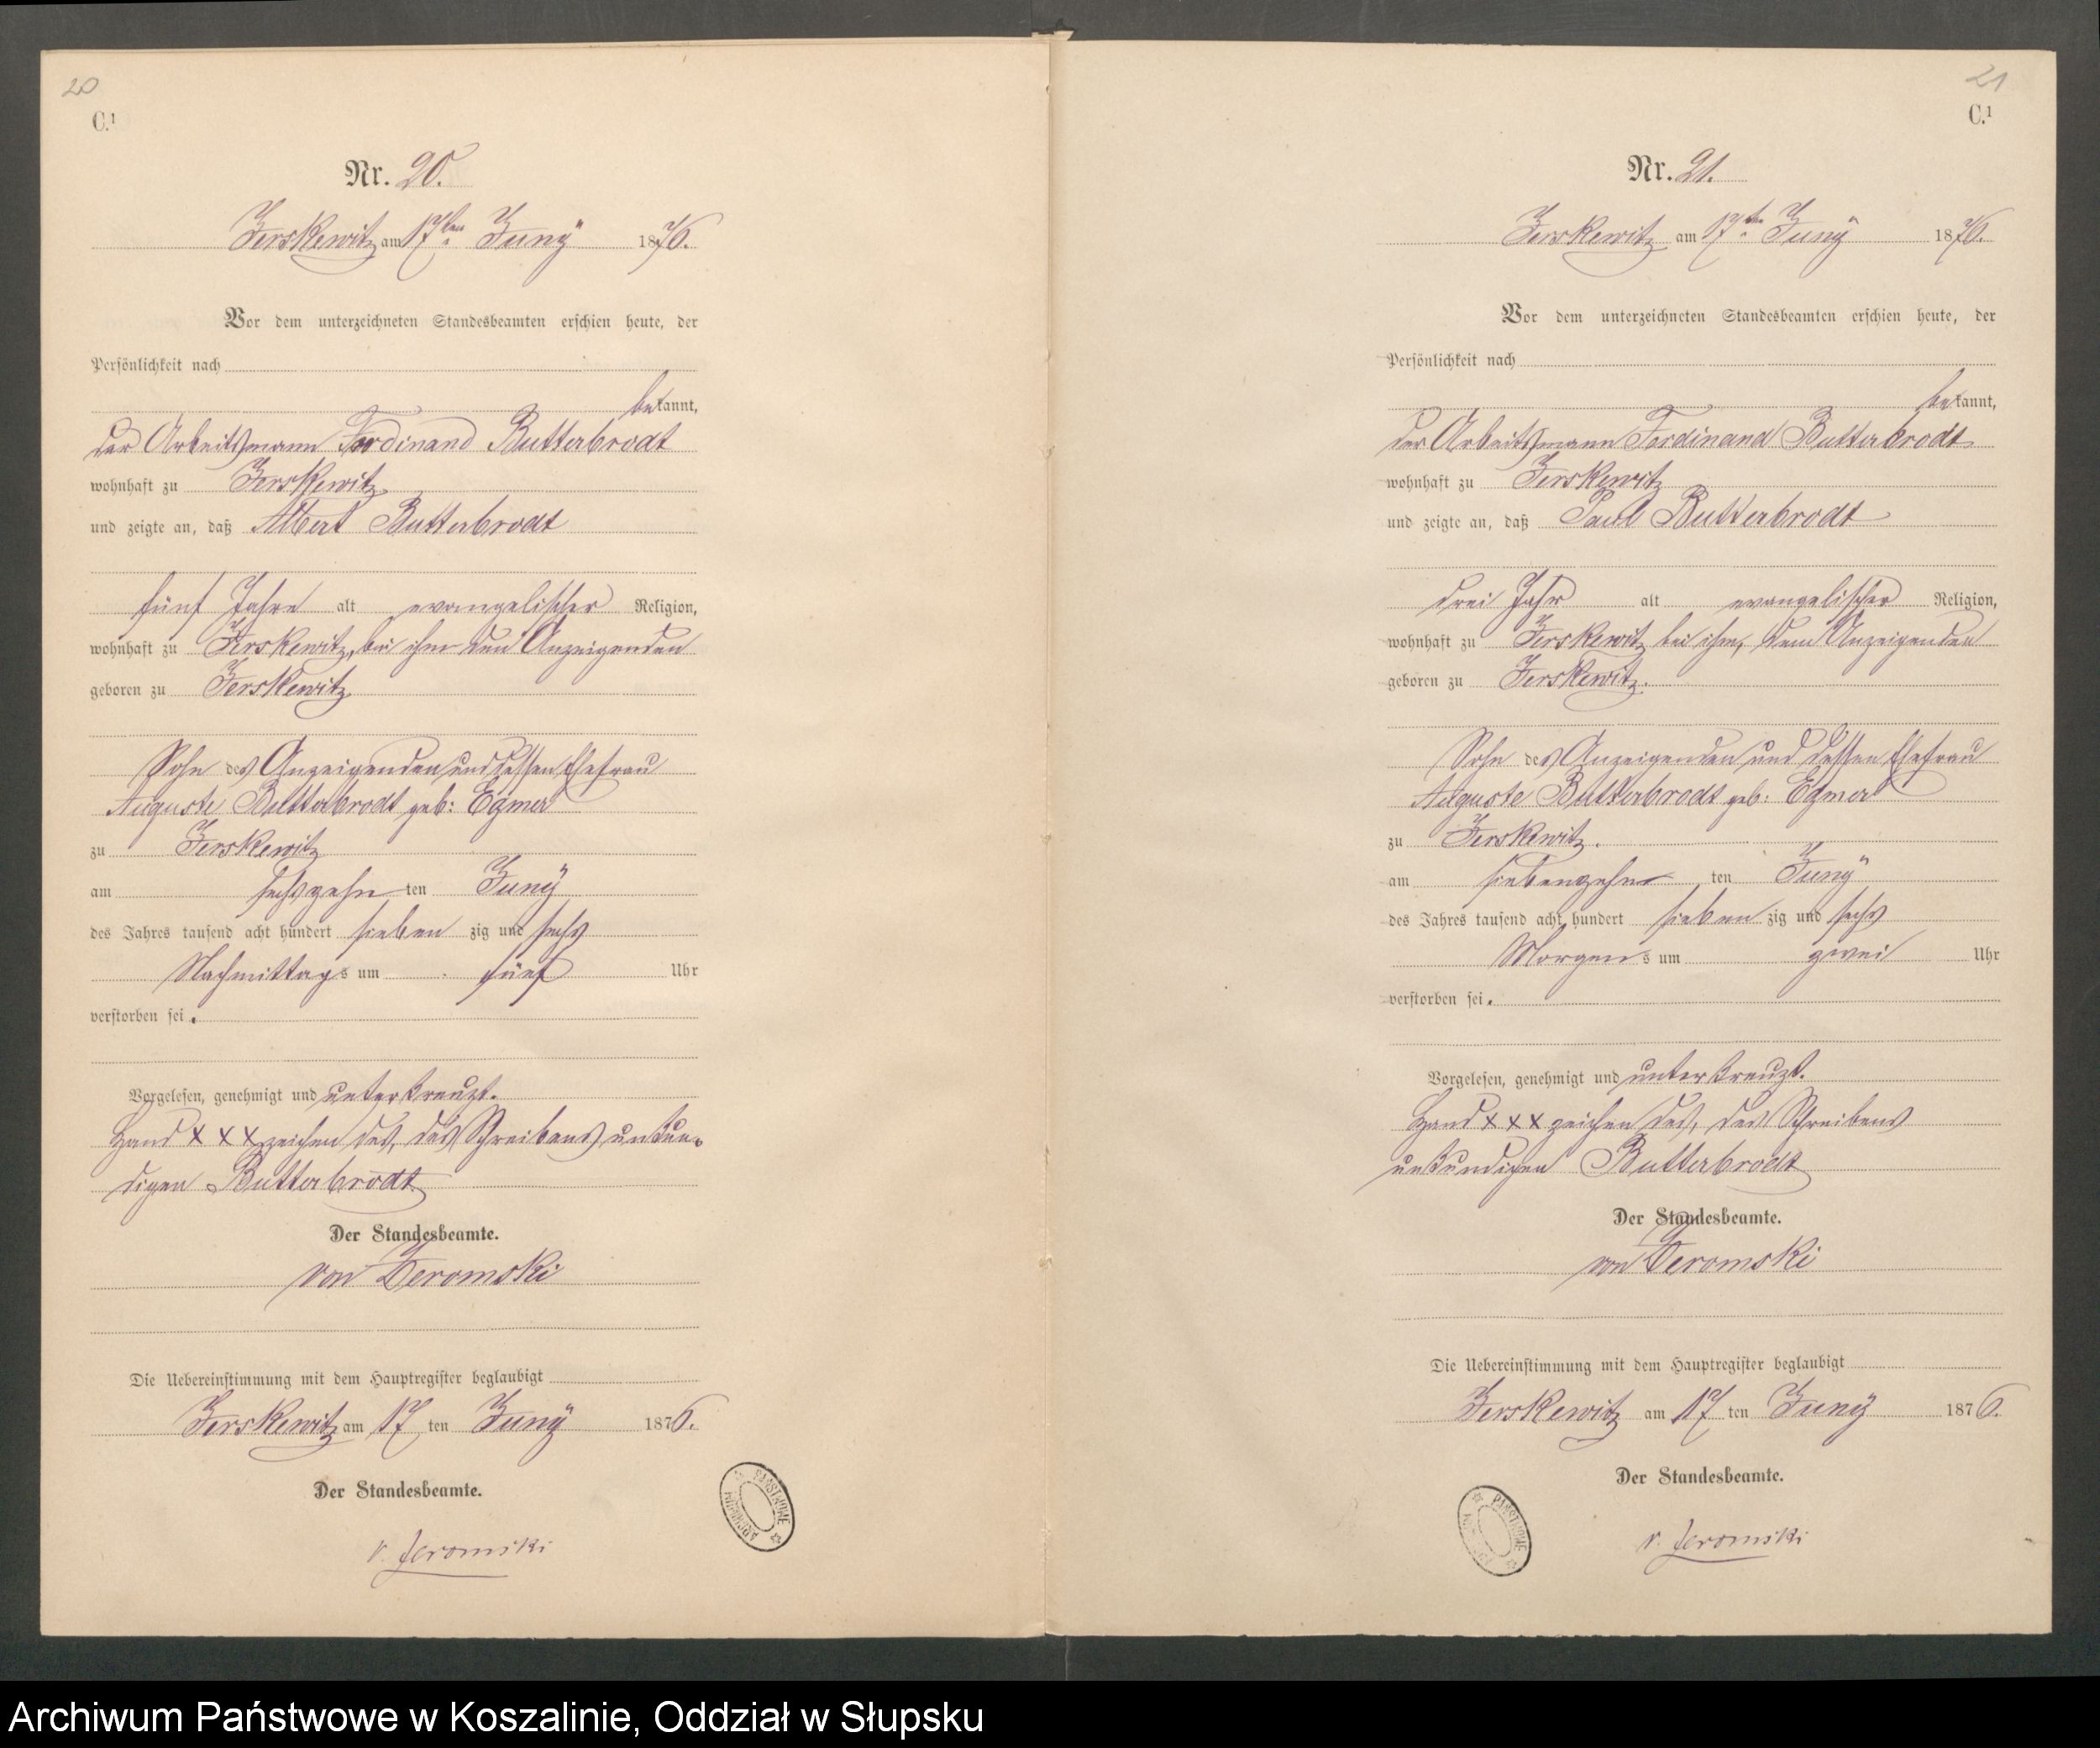 20
C.¹
Nr. 20.
Jerskewitz am 17ten Juny 1876.
Vor dem unterzeichneten Standesbeamten erschien heute, der
Persönlichkeit nach
bekannt,
der Arbeitsmann Ferdinand Butterbrodt
wohnhaft zu Jerskewitz
und zeigte an, daß Albert Butterbrodt
fünf Jahre alt evangelischer Religion,
wohnhaft zu Jerskewitz, bei ihm dem Anzeigenden
geboren zu Jerskewitz
Sohn des Anzeigenden und dessen Ehefrau
Auguste Butterbrodt geb: Egmer
zu Jerskewitz
am sechszehn ten Juny
des Jahres tausend acht hundert sieben zig und sechs
Nachmittags um fünf Uhr
verstorben sei.
Vorgelesen, genehmigt und unterkreuzt.
Hand x x x zeichen des, des Schreibens unkun-
digen Butterbrodt
Der Standesbeamte.
von Jeromski
Die Uebereinstimmung mit dem Hauptregister beglaubigt
Jerskewitz am 17 ten Juny 1876.
Der Standesbeamte.
v. Jeromski
ARCHIWUM PAŃSTWOWE
21
C.¹
Nr. 21.
Jerskewitz am 17ten Juny 1876.
Vor dem unterzeichneten Standesbeamten erschien heute, der
Persönlichkeit nach
bekannt,
der Arbeitsmann Ferdinand Butterbrodt
wohnhaft zu Jerskewitz
und zeigte an, daß Paul Butterbrodt
drei Jahr alt evangelischer Religion,
wohnhaft zu Jerskewitz bei ihm, dem Anzeigenden
geboren zu Jerskewitz.
Sohn des Anzeigenden und dessen Ehefrau
Auguste Butterbrodt geb: Egmer
zu Jerskewitz.
am siebenzehn ten Juny
des Jahres tausend acht hundert sieben zig und sechs
Morgens um zwei Uhr
verstorben sei.
Vorgelesen, genehmigt und unterkreuzt.
Hand x x x zeichen des, des Schreibens
unkundigen Butterbrodt
Der Standesbeamte.
von Jeromski
Die Uebereinstimmung mit dem Hauptregister beglaubigt
Jerskewitz am 17 ten Juny 1876.
Der Standesbeamte.
v. Jeromski
PAŃSTWOWE
Archiwum Państwowe w Koszalinie, Oddział w Słupsku